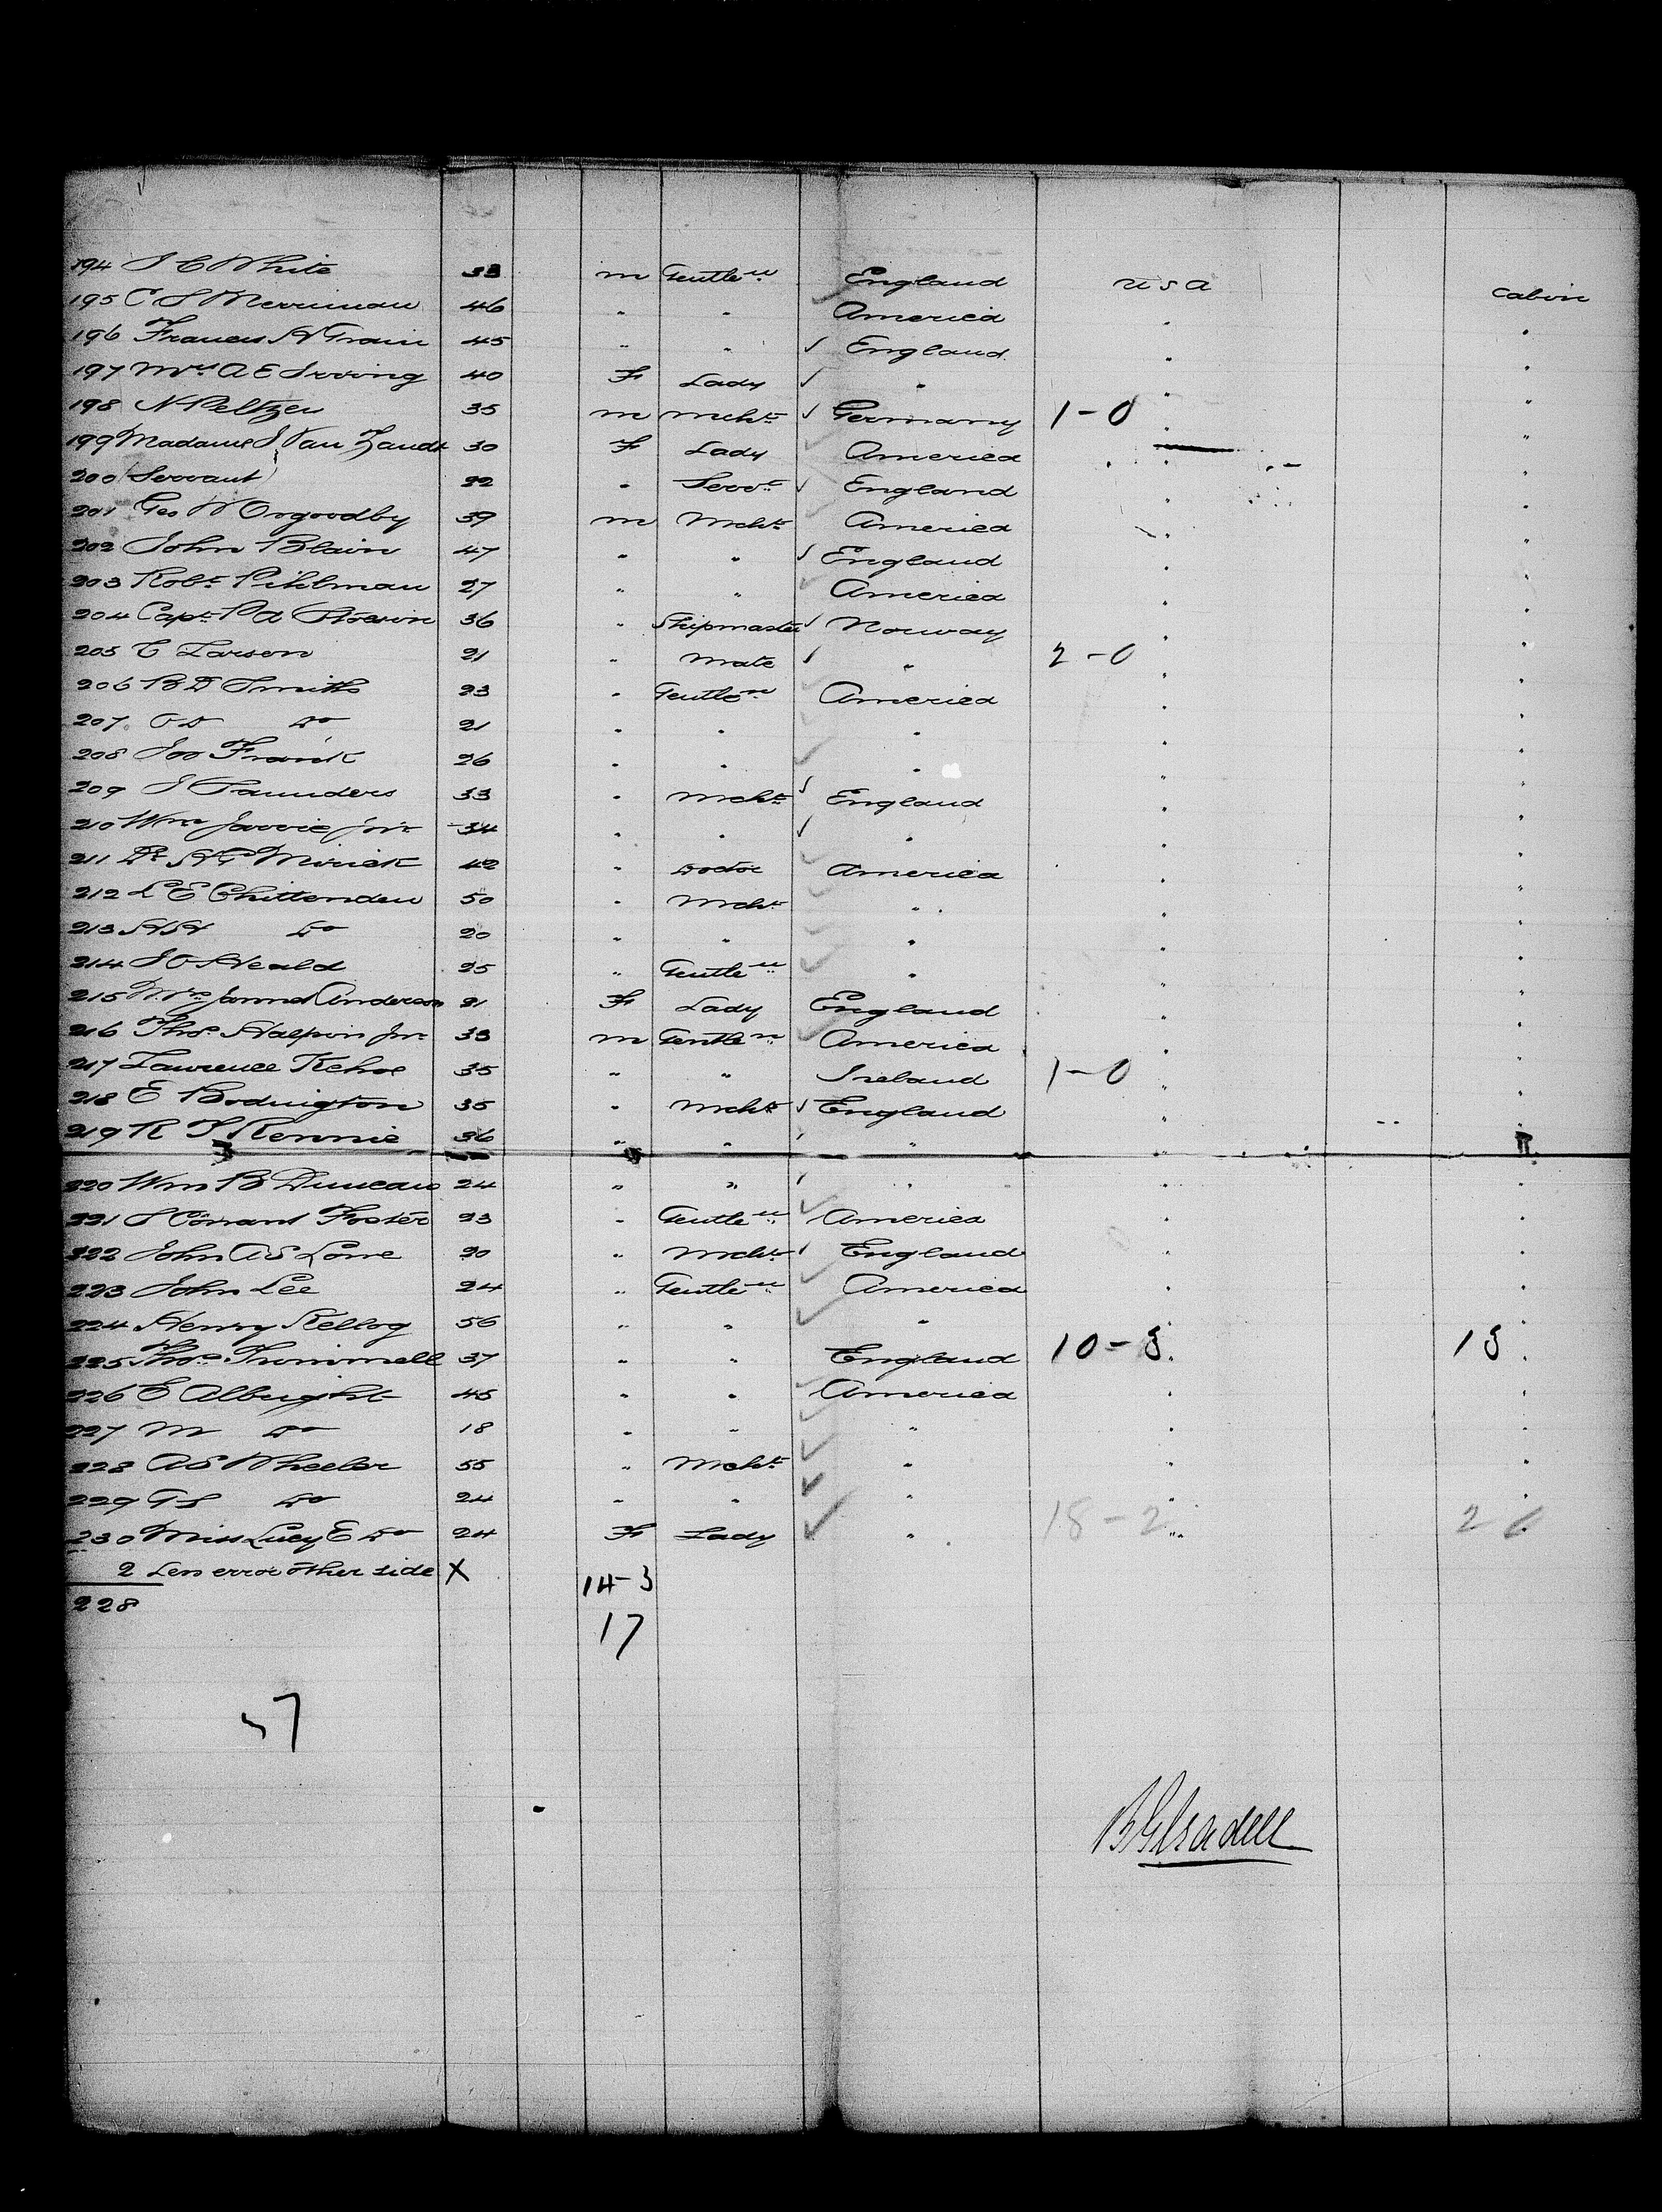 194 J C White 33 m Gentle.n England U S A Cabin
195 C S Merriman 46 " " America " "
196 Francis H Train 45 " " England " "
197 Mrs A E Irving 40 F Lady " " "
198 N Peltzer 35 m Mcht Germany 1-0 " "
199 Madame J Van Zandt 30 F Lady America " "
200 (Servant) 22 " Servt England " "
201 Geo W 39 m Mcht America " "
202 John Blain 47 " " England " "
203 Robt Pihlman 27 " " America " "
204 Capt P A 36 " Shipmaster Norway " "
205 C Larson 21 " Mate " 2-0 " "
206 B D Smith 23 " Gentle.n America " "
207 Do 21 " " " " "
208 Frank 26 " " " " "
209 J Saunders 33 " Mcht England " "
210 Wm Jarvie Jnr 34 " " " " "
211 Dr H G Mirick 42 " Doctor America " "
212 L E Chittenden 50 " Mcht " " "
213 H H Do 20 " " " " "
214 J O Heald 25 " Gentle.n " " "
215 Mrs Anderson 21 F Lady England " "
216 Thos Halpin Jnr 33 m Gentle.n America " "
217 Lawrence Kehoe 35 " " Ireland 1-0 " "
218 E Bodington 35 " Mcht England " "
219 R J Rennie 36 " " " " "
220 Wm B Duncan 24 " " " " "
221 J Conant Foster 23 " Gentle.n America " "
222 John A S Lowe 20 " Mcht England " "
223 John Lee 24 " Gentle.n America " "
224 Henry Kellog 56 " " " " "
225 Thos Thrimmell 37 " " England 10-5 " 15 "
226 E Albright 45 " " America " "
227 M Do 18 " " " " "
228 A S Wheeler 55 " Mcht " " "
229 G S Do 24 " " " " "
230 Miss Lucy E Do 24 F Lady " 18-2 " 20
2 Less error other side X 14-3
228 17
37